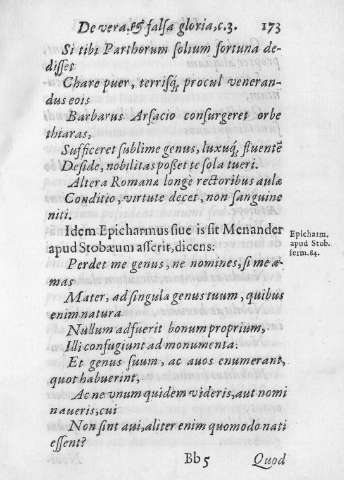 De vera, & falsa gloria, c. 3. 173
Si tibi Parthorum solium fortuna de-
disset
Chare puer, terrisq́; procul veneran-
dus eois
Barbarus Arsacio consurgeret orbe
thiaras,
Sufficeret sublime genus, luxuq́; fluentẽ
Deside, nobilitas posset te sola tueri.
Altera Romanæ longè rectoribus aulæ
Conditio, virtute decet, non sanguine
niti.
Idem Epicharmus siue is sit Menander
apud Stobæum asserit, dicens:
Epicharm.
apud Stob.
serm. 84.
Perdet me genus, ne nomines, si me a-
mas
Mater, ad singula genus tuum, quibus
enim natura
Nullum adfuerit bonum proprium,
Illi confugiunt ad monumenta.
Et genus suum, ac auos enumerant,
quot habuerint,
Ac ne vnum quidem videris, aut nomi
naueris, cui
Non sint aui, aliter enim quomodo nati
essent?
Bb 5 Quod